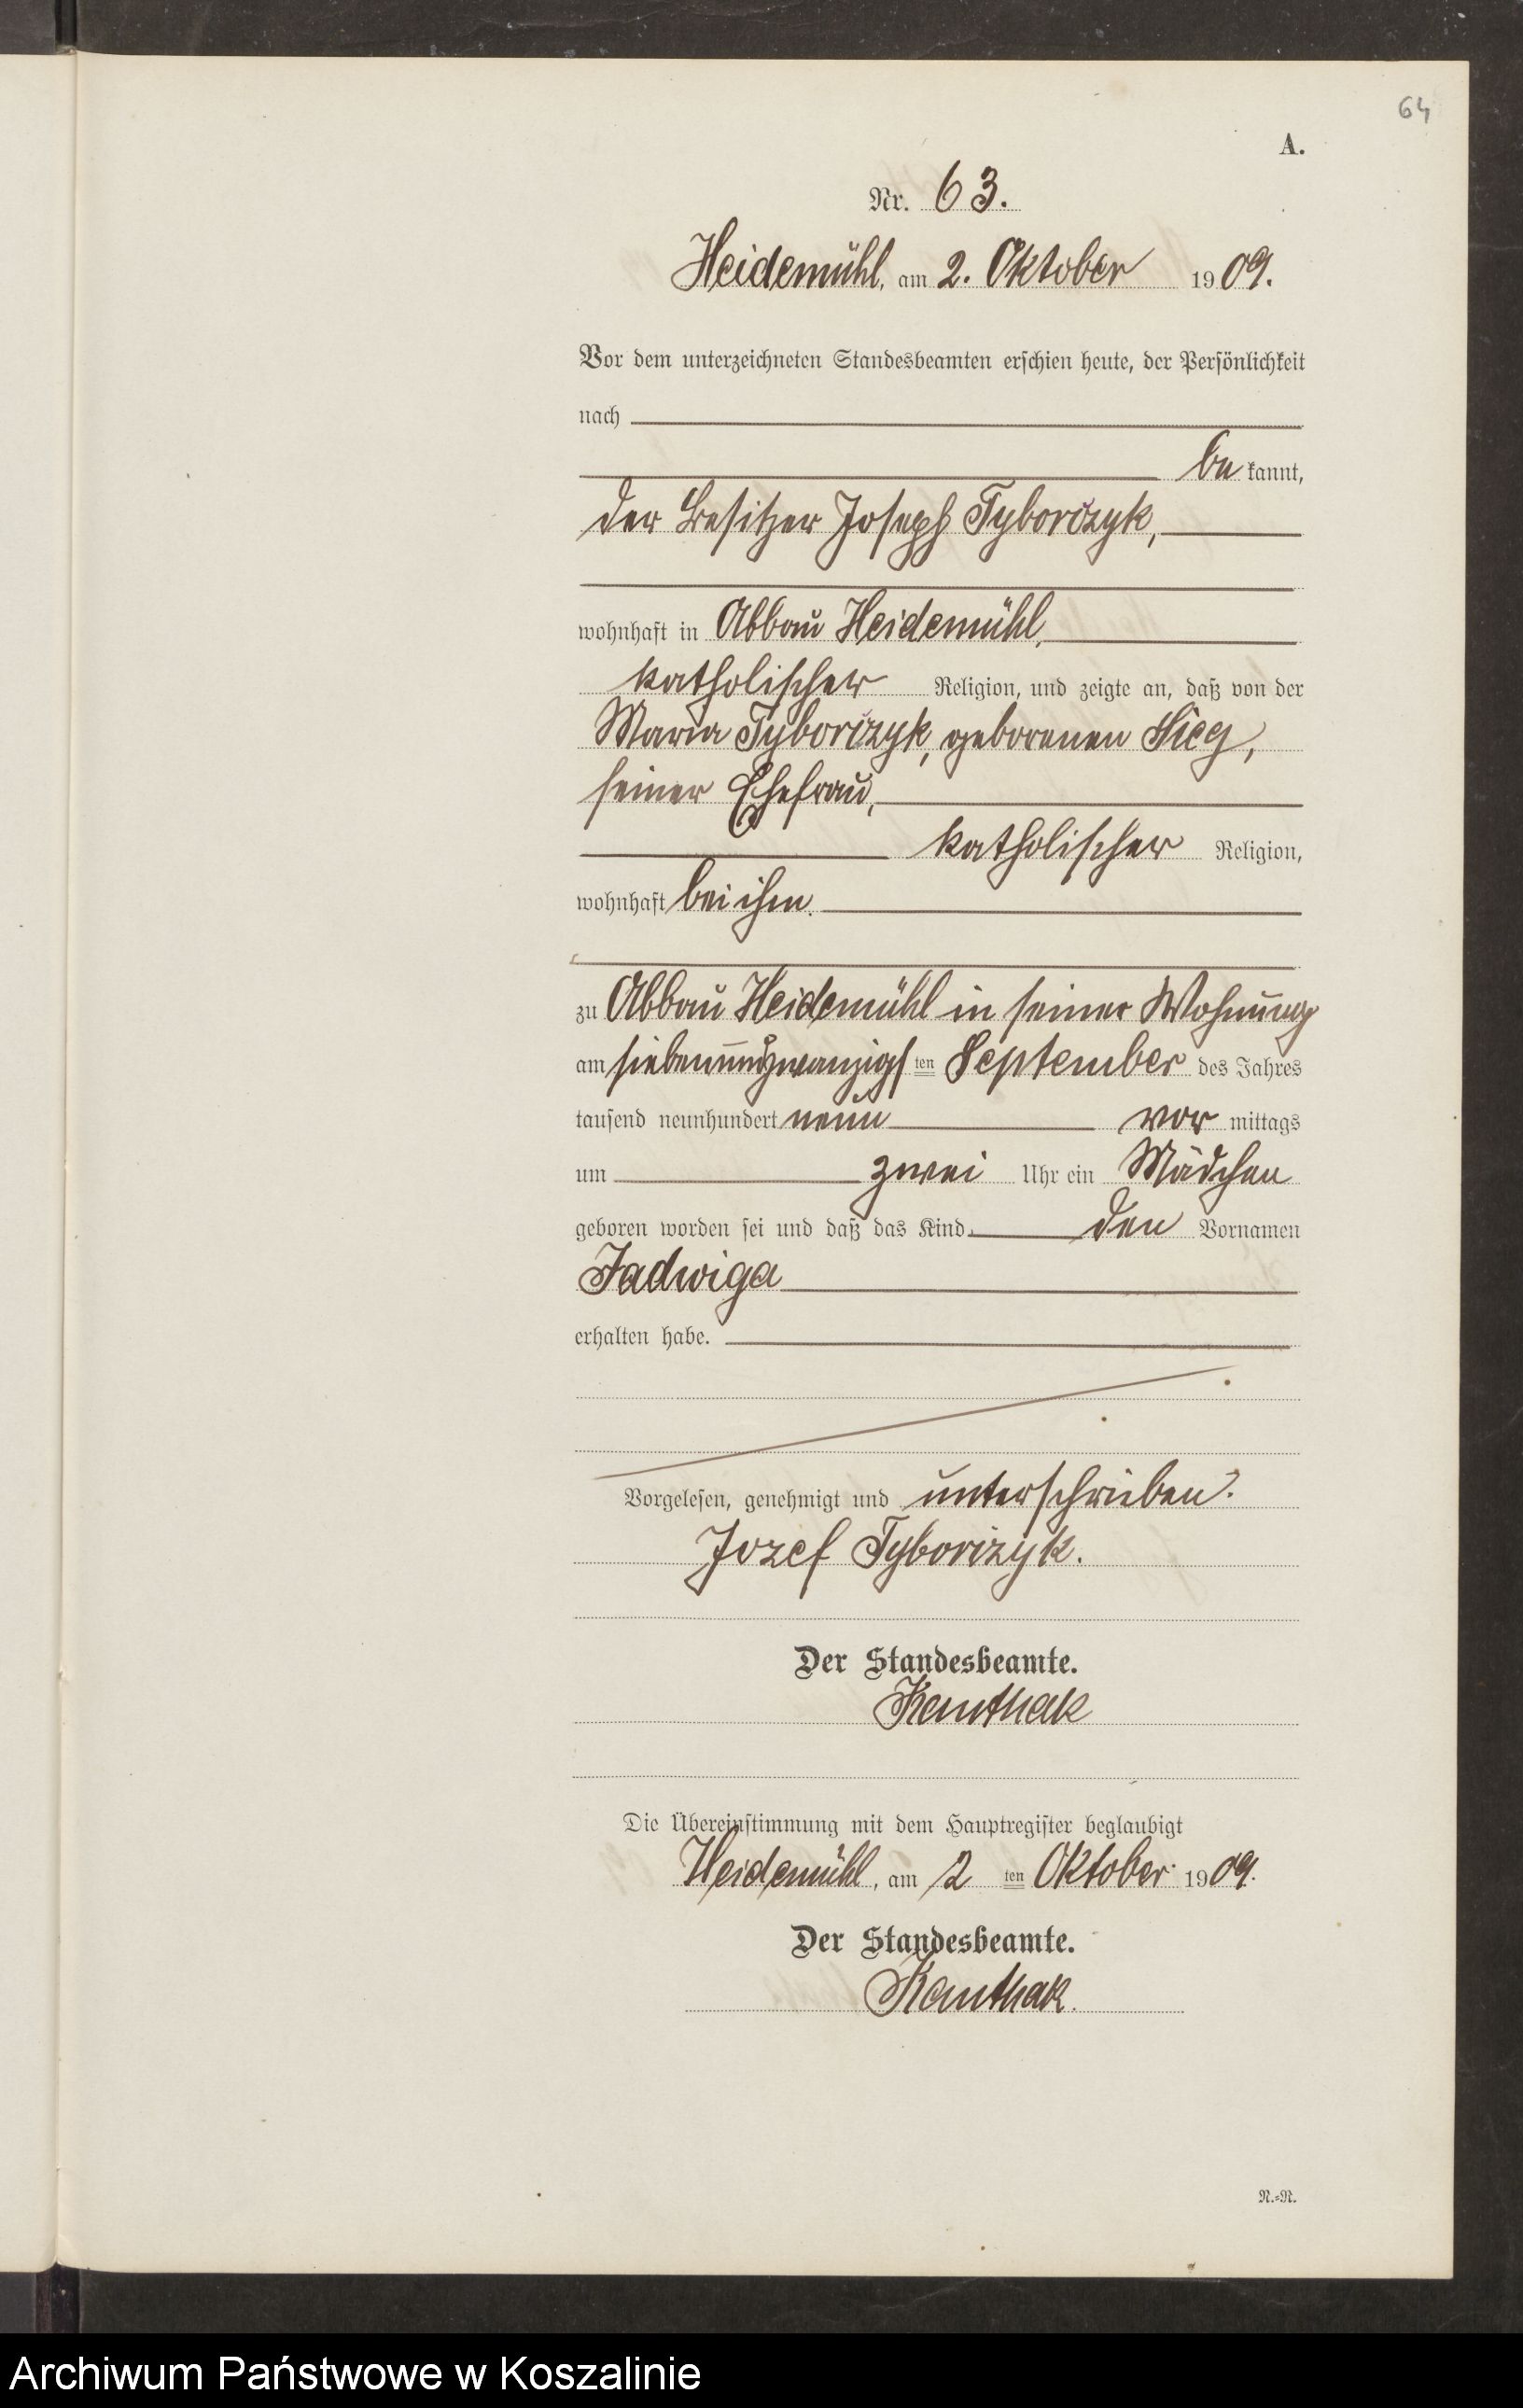 64
A.
Nr. 63.
Heidemühl, am 2. Oktober 1909.
Vor dem unterzeichneten Standesbeamten erschien heute, der Persönlichkeit
nach
bekannt,
der Besitzer Joseph Tyborczyk,
wohnhaft in Abbau Heidemühl,
katholischer Religion, und zeigte an, daß von der
Maria Tyborczyk, geborenen Sieg,
seiner Ehefrau,
katholischer Religion,
wohnhaft bei ihm
zu Abbau Heidemühl in seiner Wohnung
am siebenundzwanzigsten September des Jahres
tausend neunhundert neun vormittags
um zwei Uhr ein Mädchen
geboren worden sei und daß das Kind den Vornamen
Jadwiga
erhalten habe.
Vorgelesen, genehmigt und unterschrieben.
Jozef Tyborczyk.
Der Standesbeamte.
Die Übereinstimmung mit dem Hauptregister beglaubigt
Heidemühl, am 2ten Oktober 1909.
Der Standesbeamte.
N.=N.
Archiwum Państwowe w Koszalinie